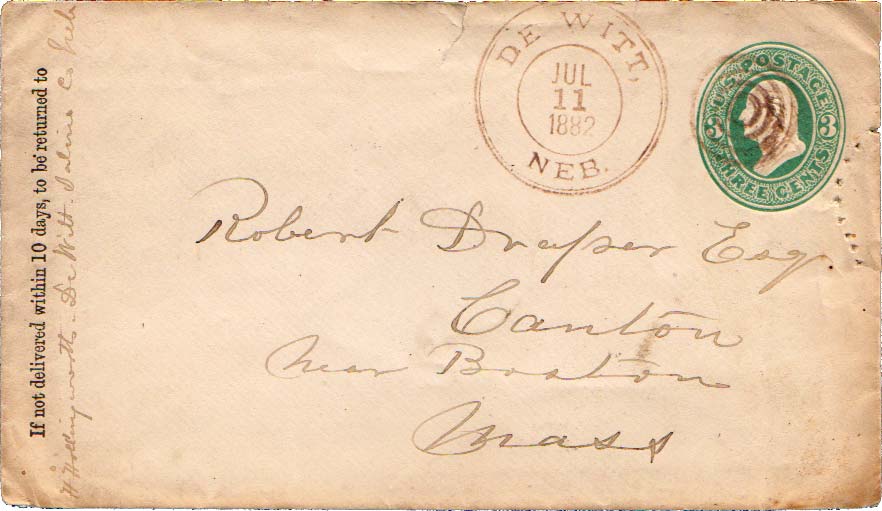 If not delivered within 10 days, to be returned to
H Hollingworth - De Witt. Saline Co Neb
DE WITT,
JUL
11
1882
NEB.
U.S. POSTAGE
3 3
THREE CENTS
Robert Draper Esq
Canton
near Boston
Mass